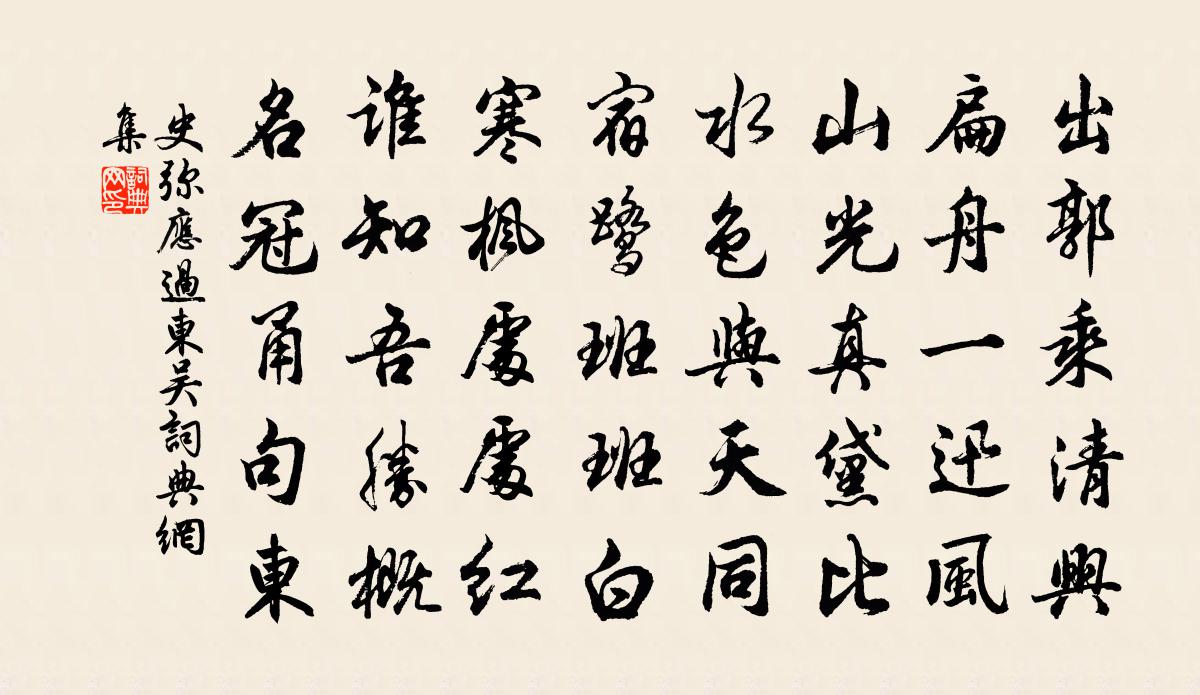 出郭乘清興
扁舟一迅風
山光真黛比
水色與天同
宿鷺班班白
寒楓處處紅
誰知吾勝概
名冠甬句東
史弥應過東吴詞典網
集
詞典
网印